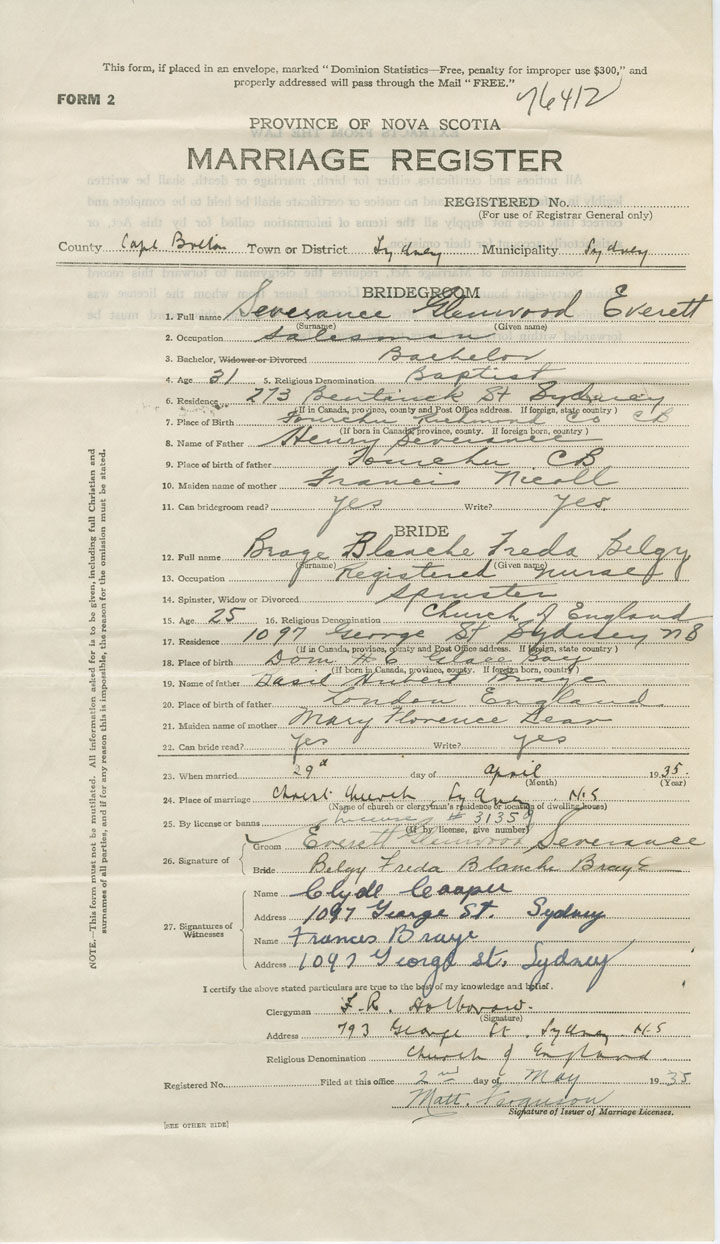 This form, if placed in an envelope, marked "Dominion Statistics—Free, penalty for improper use $300," and
properly addressed will pass through the Mail "FREE."
FORM 2
76412
PROVINCE OF NOVA SCOTIA
MARRIAGE REGISTER
REGISTERED No.
(For use of Registrar General only)
County Cape Breton Town or District Sydney Municipality Sydney
BRIDEGROOM
1. Full name Severance Glenwood Everett
(Surname) (Given name)
2. Occupation Salesman
3. Bachelor, Widower or Divorced Bachelor
4. Age 31 5. Religious Denomination Baptist
6. Residence 273 Bentinck St Sydney
(If in Canada, province, county and Post Office address. If foreign, state country)
7. Place of Birth Fourchu Richmond Co CB
(If born in Canada, province, county. If foreign born, country)
8. Name of Father Henry Severance
9. Place of birth of father Fourchu CB
10. Maiden name of mother Francis Nicoll
11. Can bridegroom read? Yes Write? Yes.
BRIDE
12. Full name Braye Blanche Freda Belgy
(Surname) (Given name)
13. Occupation Registered Nurse
14. Spinster, Widow or Divorced Spinster
15. Age 25 16. Religious Denomination Church of England
17. Residence 1097 George St Sydney NS
(If in Canada, province, county and Post Office address. If foreign, state country)
18. Place of birth Dom # 6 Glace Bay
(If born in Canada, province, county. If foreign born, country)
19. Name of father Basil Hubert Braye
20. Place of birth of father London England
21. Maiden name of mother Mary Florence Dear
22. Can bride read? Yes Write? Yes
23. When married 29th day of April 1935
(Month) (Year)
24. Place of marriage Christ Church, Sydney N.S
(Name of church or clergyman's residence or location of dwelling house)
25. By license or banns License # 3135
(If by license, give number)
26. Signature of Groom Everett Glenwood Severance
Bride Belgy Freda Blanche Braye
27. Signatures of Witnesses Name Clyde Cooper
Address 1097 George St. Sydney
Name Frances Braye
Address 1097 George st. Sydney
I certify the above stated particulars are true to the best of my knowledge and belief.
Clergyman F. R.
(Signature)
Address 793 George St. Sydney N.S
Religious Denomination Church of England
Registered No. Filed at this office 2nd day of May 1935
Matt. Ferguson
Signature of Issuer of Marriage Licenses.
[SEE OTHER SIDE]
NOTE.—This form must not be mutilated. All information asked for is to be given, including full Christian and
surnames of all parties, and if for any reason this is impossible, the reason for the omission must be stated.